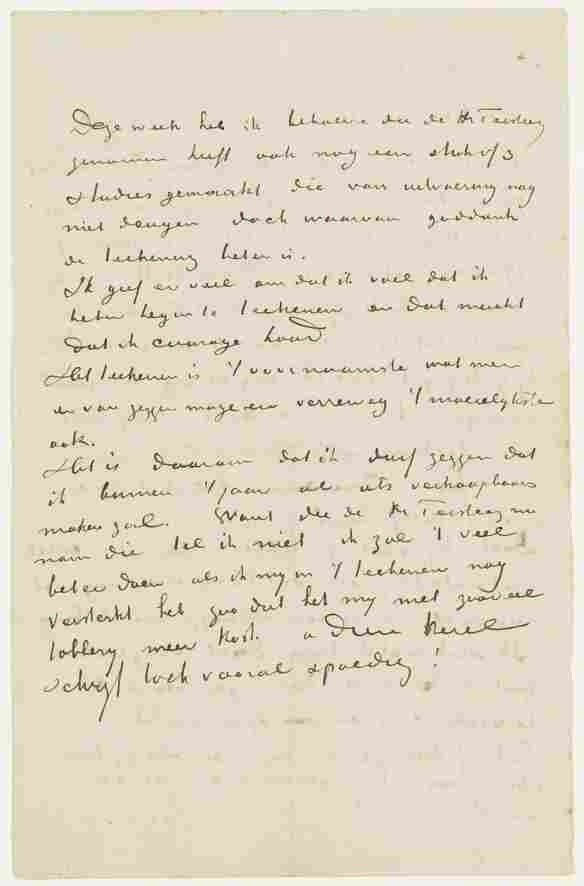 Deze week heb ik behalve die de Hr Tersteeg
genomen heeft ook nog een stuk of 3
studies gemaakt die van uitvoering nog
niet deugen doch waarvan goddank
de teekening beter is.
Ik geef er veel om dat ik voel dat ik
beter begin te teekenen en dat maakt
dat ik courage houd
Het teekenen is 't voornaamste wat men
er van zeggen moge en verreweg 't moeielykste
ook.
Het is daarom dat ik durf zeggen dat
ik binnen 't jaar al iets verkoopbaars
maken zal. Want die de Hr Tersteeg nu
nam die tel ik niet ik zal 't veel
beter doen als ik my in 't teekenen nog
versterkt heb zoo dat het my niet zooveel
tobbery meer kost.
schryf toch vooral spoedig!